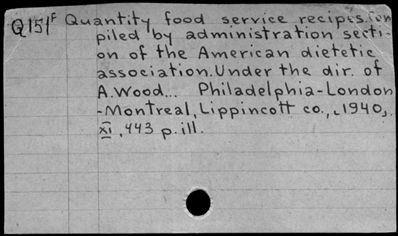 Q151F Quantity food service recipes.com
piled by administration secti-
on of the American dietetic
association. Under the dir. of
A. Wood... Philadelphia-London
-Montreal, Lippincott co., c1940,.
xi, 443 p. ill.